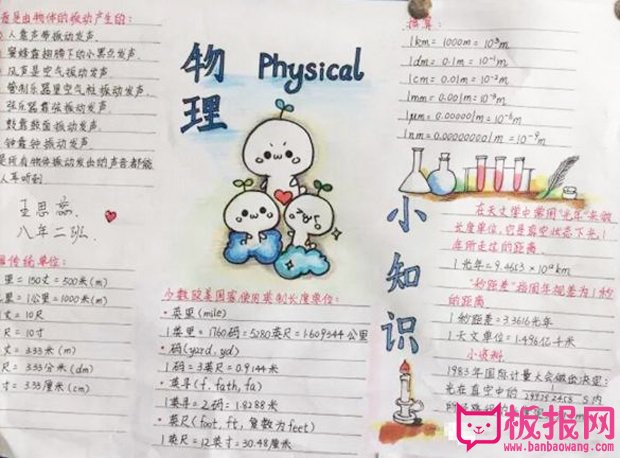 音是由物体的振动产生的:
人靠声带振动发声.
蜜蜂靠翅膀下的小黑点发声.
风声是空气振动发声.
管制乐器里空气柱振动发声.
弦乐器靠弦振动发声.
鼓靠鼓面振动发声.
钟靠钟振动发声.
是所有物体振动发出的声音都能
人耳听到
王思蕊
八年二班.
传统单位:
里=150丈=500米(m)
里=1公里=1000米(m)
丈=10尺
尺=10寸
丈=3.33米(m)
尺=3.33分米(dm)
寸=3.33厘米(cm)
物理
Physical
少数欧美国家使用英制长度单位:
·英里(mile)
1英里=1760码=5280英尺=1.609344公里
·码(yard, yd)
1码=3英尺=0.9144米
·英寻(f, fath, fa)
1英寻=2码=1.8288米
·英尺(foot, ft, 复数为feet)
1英尺=12英寸=30.48厘米
小知识
换算:
1km=1000m=10³m
1dm=0.1m=10⁻¹m
1cm=0.01m=10⁻²m
1mm=0.001m=10⁻³m
1μm=0.00001m=10⁻⁶m
1nm=0.000000001m=10⁻⁹m
在天文学中常用"光年"来做
长度单位,它是真空状态下光1
年所走过的距离
1光年=9.4653×10¹²km
"秒距差"指周年视差为1秒
的距离
1秒距差=3.3616光年
1天文单位=1.496亿千米
小资料
1983年国际计量大会做出决定:
光在真空中的 1/299792458 S内
板报网
www.banbaowang.com